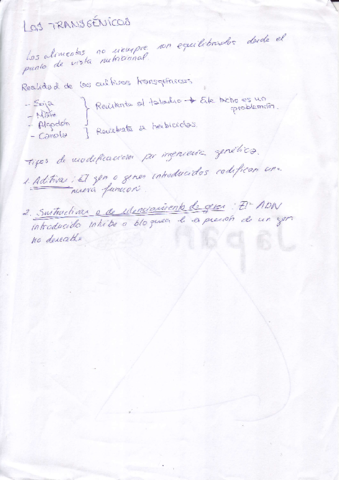 LOS TRANSGÉNICOS
Los alimentos no siempre son equilibrados desde el
punto de vista nutricional
Realidad de los cultivos transgénicos.
- Soja
- Maíz
- Algodón
- Canola
Resistente al taladro → Este bicho es un
problemón.
Resistente a herbicidas.
Tipos de modificación por ingeniería genética.
1. Aditiva: El gen o genes introducidos codifican una
nueva función.
2. Sustractiva o de silenciamiento de genes: El ADN
introducido inhibe o bloquea la expresión de un gen
no deseable
Japan